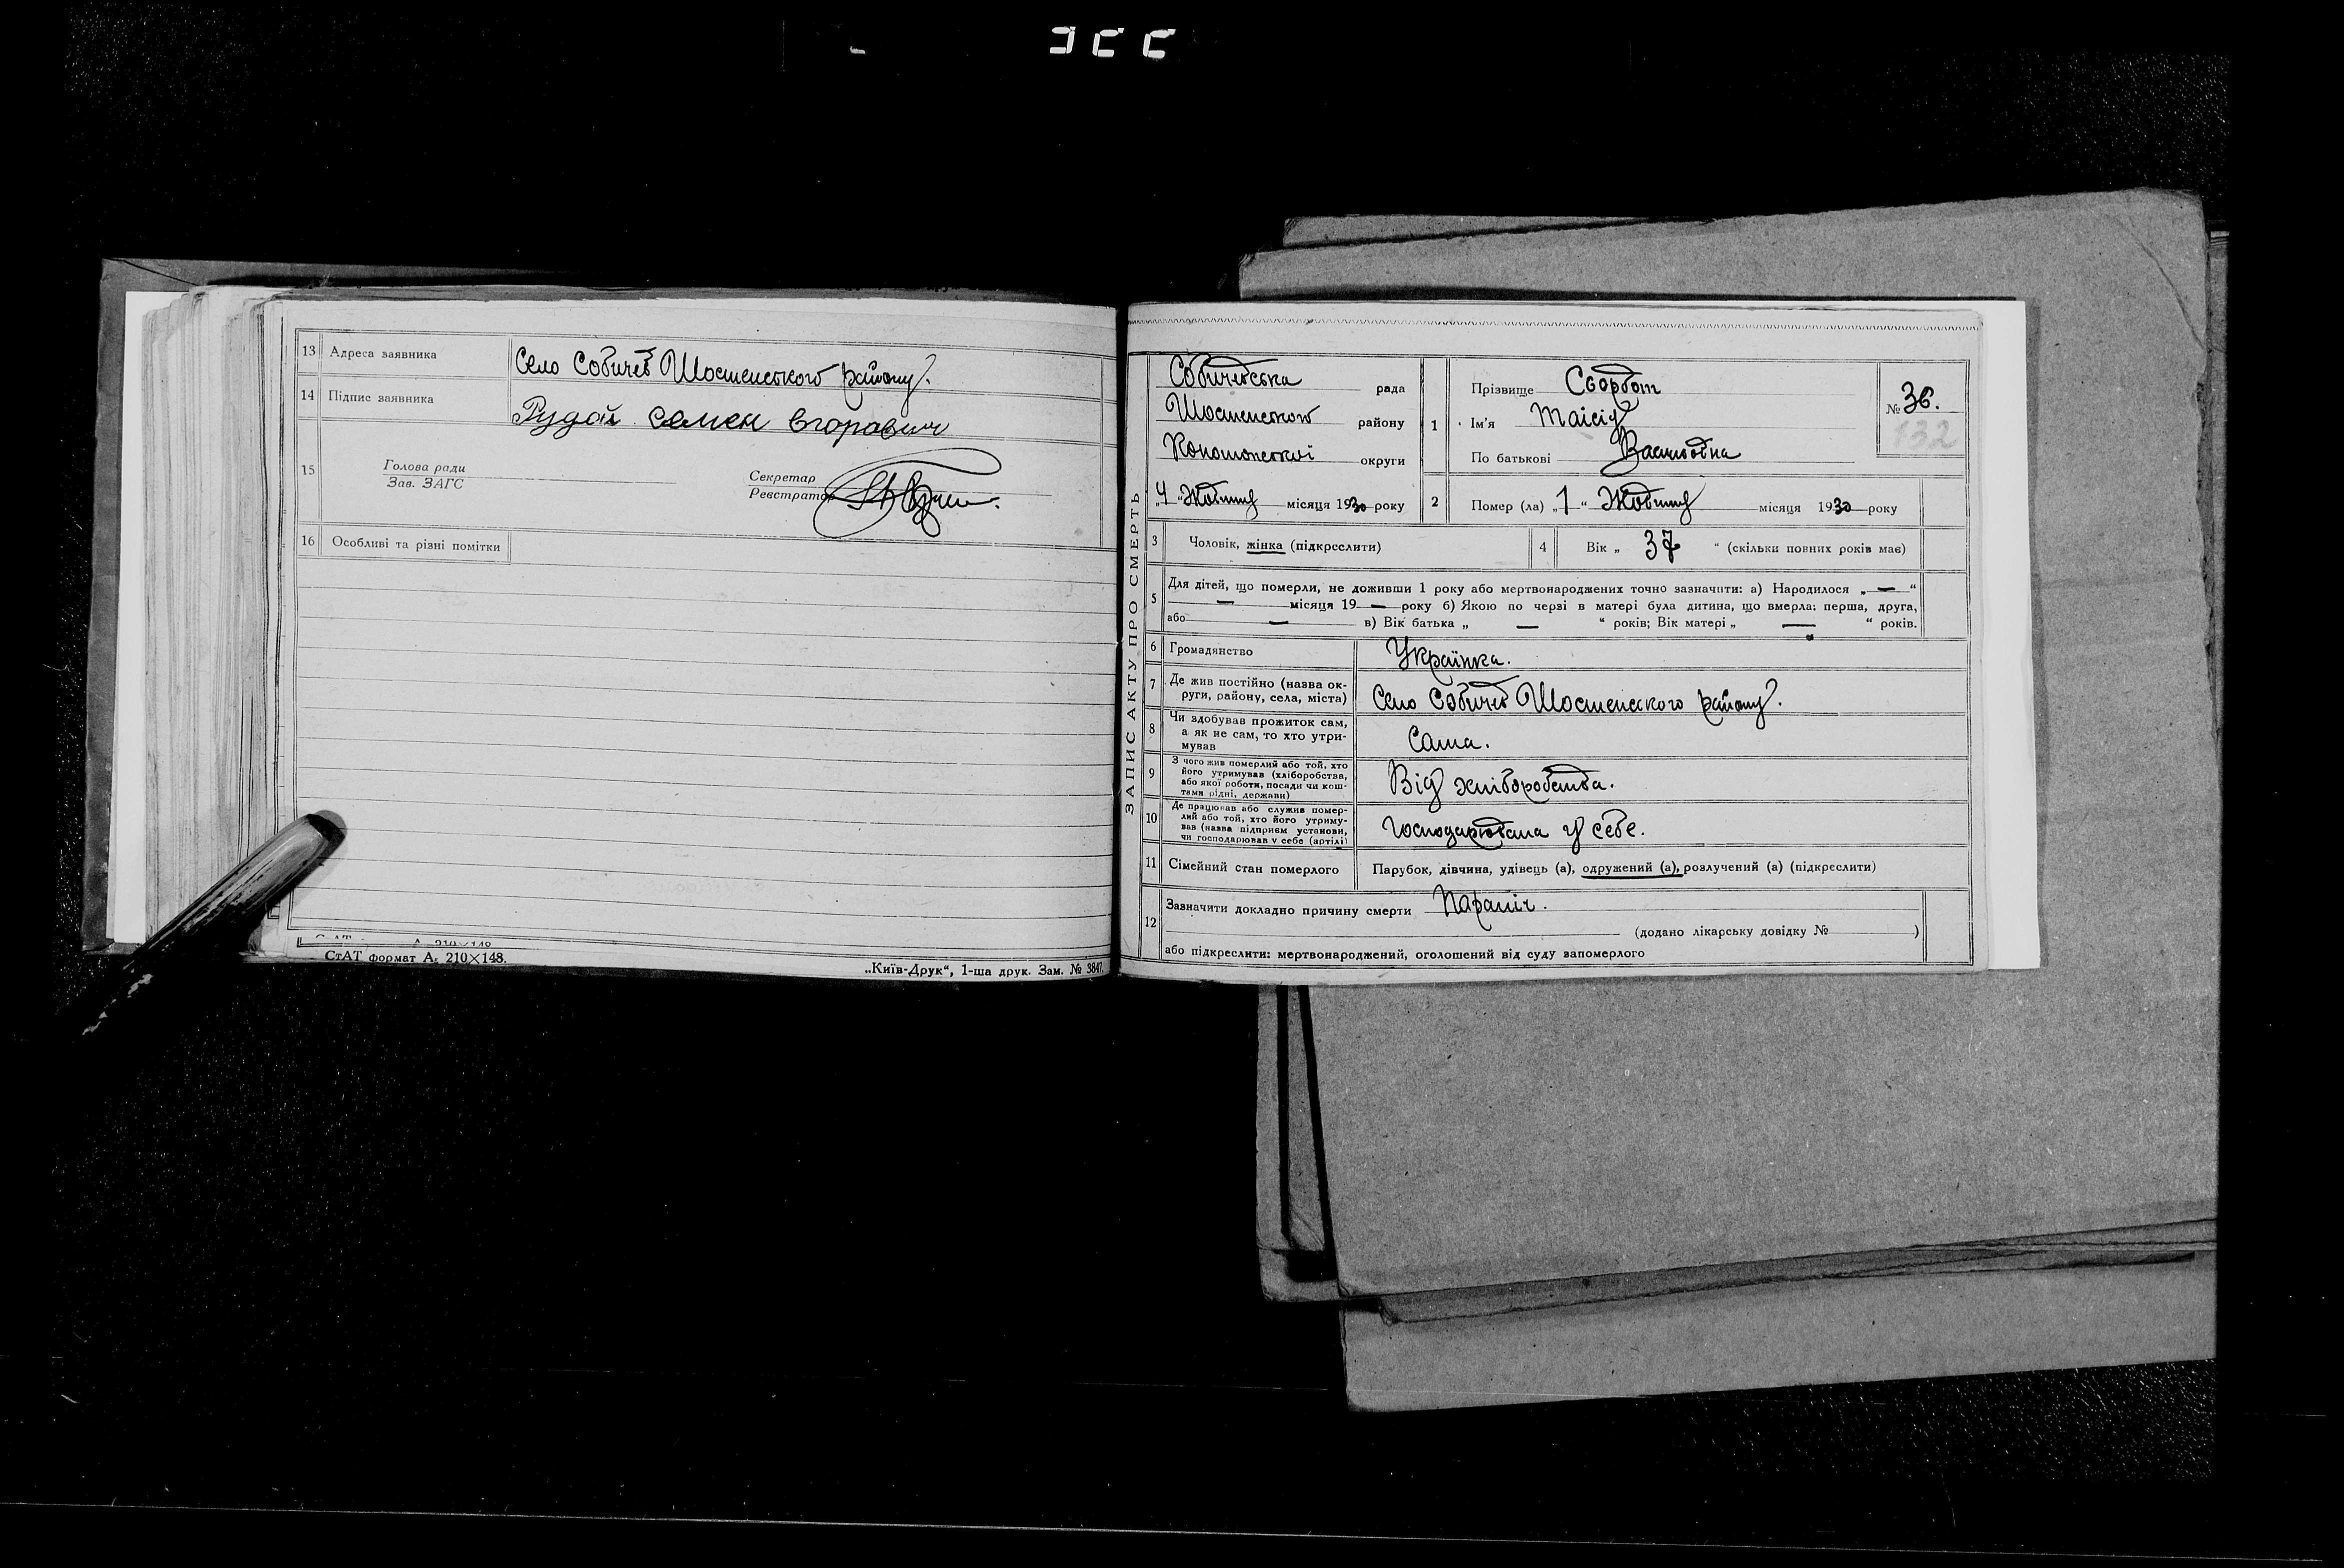 13 Адреса заявника Село Собичев Шостенського району.
14 Підпис заявника Рудой Семен Егоравич
15 Голова ради
Зав. ЗАГС
Секретар
Реєстратор
16 Особливі та різні помітки
СтАТ формат А₅ 210×148.
„Київ-Друк“, 1-ша друк. Зам. № 3847.
ЗАПИС АКТУ ПРО СМЕРТЬ
Собичевська рада
Шостенського району
Конотопської округи
„4“ Жовтня місяця 1930 року
1 Прізвище
Ім'я Таісія
По батькові Василовна
№ 36.
132
2 Помер (ла) „1“ Жовтня місяця 1930 року
3 Чоловік, жінка (підкреслити)
4 Вік „ 37 “ (скільки повних років має)
5 Для дітей, що померли, не доживши 1 року або мертвонароджених точно зазначити: а) Народилося „ — “
— місяця 19 — року б) Якою по черзі в матері була дитина, що вмерла: перша, друга,
або — в) Вік батька „ — “ років; Вік матері „ — “ років.
6 Громадянство Українка.
7 Де жив постійно (назва ок-
руги, району, села, міста) Село Собичев Шостенского району.
8 Чи здобував прожиток сам,
а як не сам, то хто утри-
мував Сама.
9 З чого жив померлий або той, хто
його утримував (хліборобства,
або якої роботи, посади чи кош-
тами рідні, держави) Від хліборобства.
10 Де працював або служив помер-
лий або той, хто його утриму-
вав (назва підприєм установи,
чи господарював у себе (артілі) Господарювала у себе.
11 Сімейний стан померлого Парубок, дівчина, удівець (а), одружений (а), розлучений (а) (підкреслити)
12 Зазначити докладно причину смерти Параліч.
(додано лікарську довідку № )
або підкреслити: мертвонароджений, оголошений від суду запомерлого